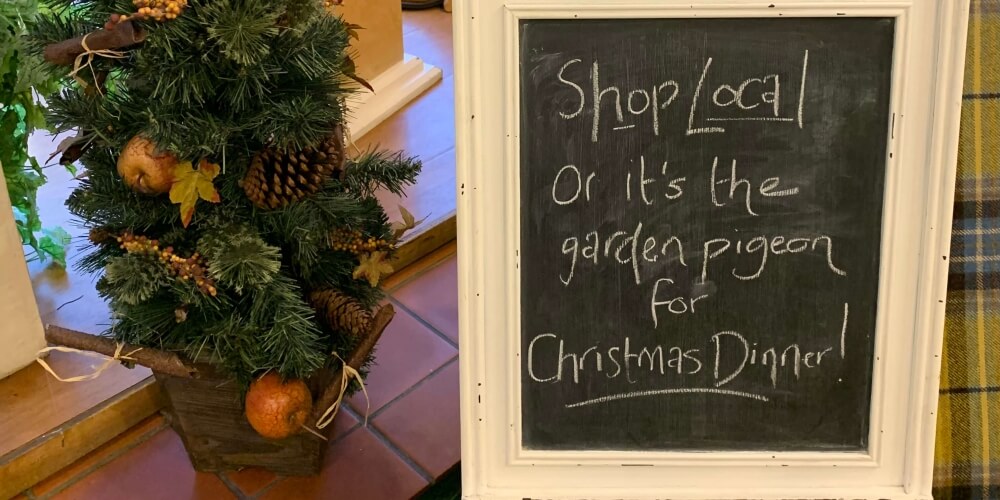 Shop Local
Or it's the
garden pigeon
for
Christmas Dinner!